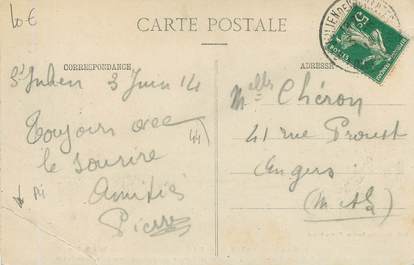 10€
CARTE POSTALE
CORRESPONDANCE
ADRESSE
St Julien 3 Juin 14
Toujours avec
le sourire
Amitiés
Pierre
44
Melles Chéron
41 rue Proust
Angers
(M &
5c